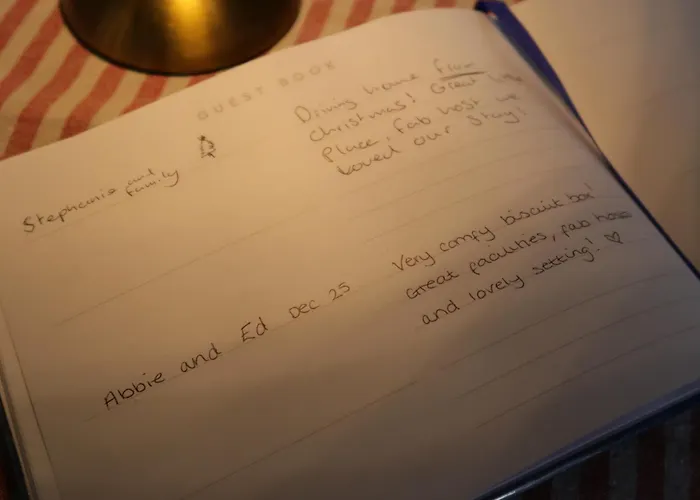 GUEST BOOK
Stephanie and
family
Driving home from
christmas! Great little
Place, Fab host we
loved our stay!
Abbie and Ed Dec 25
Very comfy biscuit box!
Great facilities, fab hosts
and lovely setting! ♡